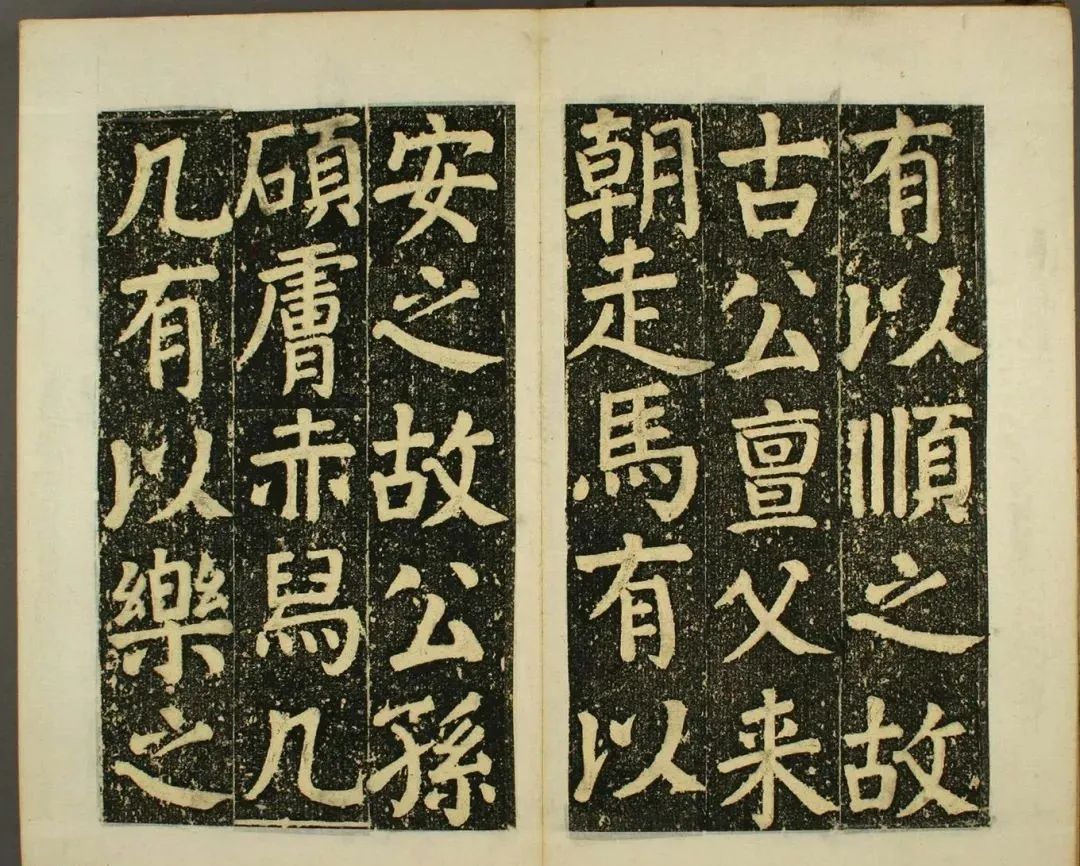 有以順之故
古公亶父来
朝走馬有以
安之故公孫
碩膚赤舄几
几有以樂之